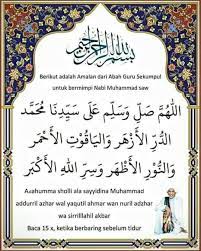 بسم الله الرحمن الرحيم
Berikut adalah Amalan dari Abah Guru Sekumpul
untuk bermimpi Nabi Muhammad saw
اللهم صل وسلم على سيدنا محمد
الدر الأزهر والياقوت الأحمر
والنور الأظهر وسر الله الأكبر
Aoahumma sholli ala sayyidina Muhammad
addurril azhar wal yaqutil ahmar wan nuril adzhar
wa sirrillahil akbar
Baca 15 x, ketika berbaring sebelum tidur